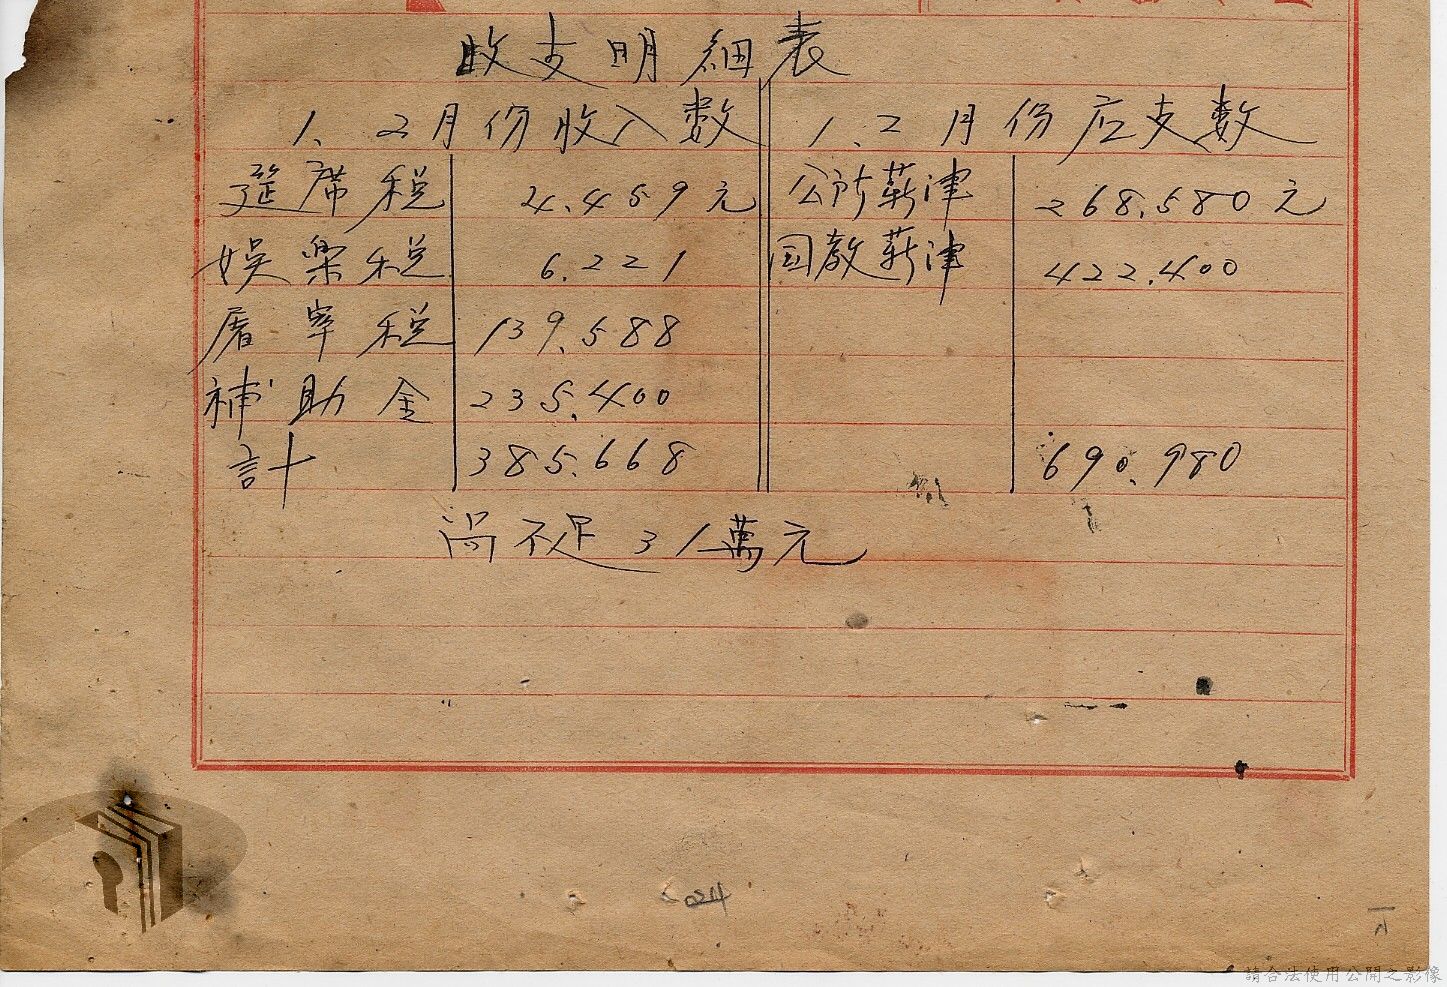 收支明細表
1、2月份收入數 1、2月份应支數
筵席稅 4.459元 公所薪津 268.580元
娛樂稅 6.221 国教薪津 422.400
屠宰稅 139.588
補助金 235.400
計 385.668 690.980
尚不足31萬元
024
請合法使用公開之影像